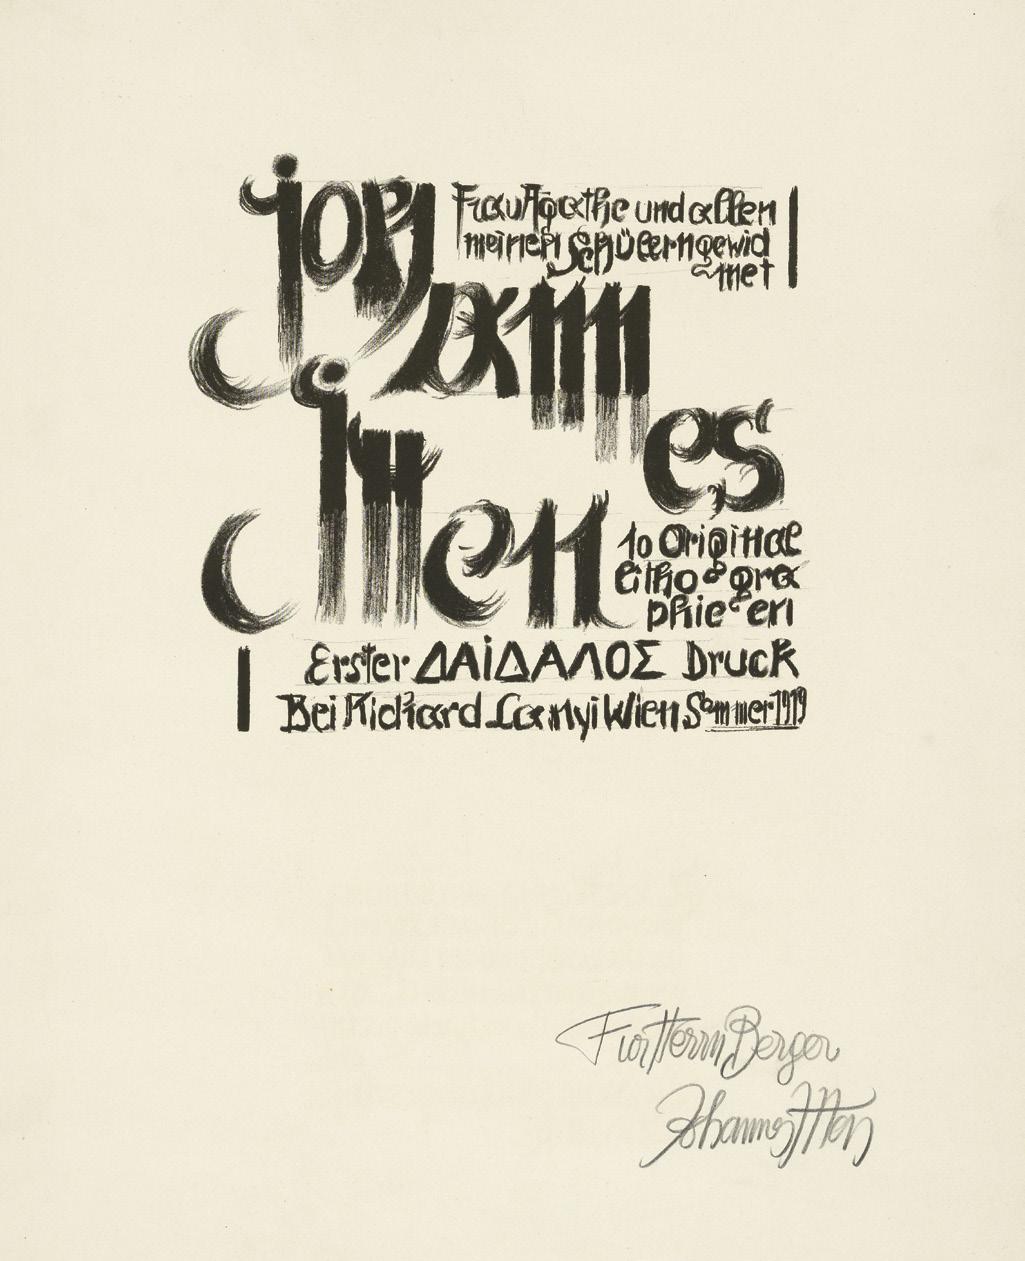 joh
Frau Agathe und allen
meinen Schülern gewid
met
ann
es
itten
10 Original
litho gra
phie en
Erster ΔΑΪΔΑΛΟΣ Druck
Bei Richard Lanyi Wien Sommer 1919
Für Herrn Berger
Johannes Itten